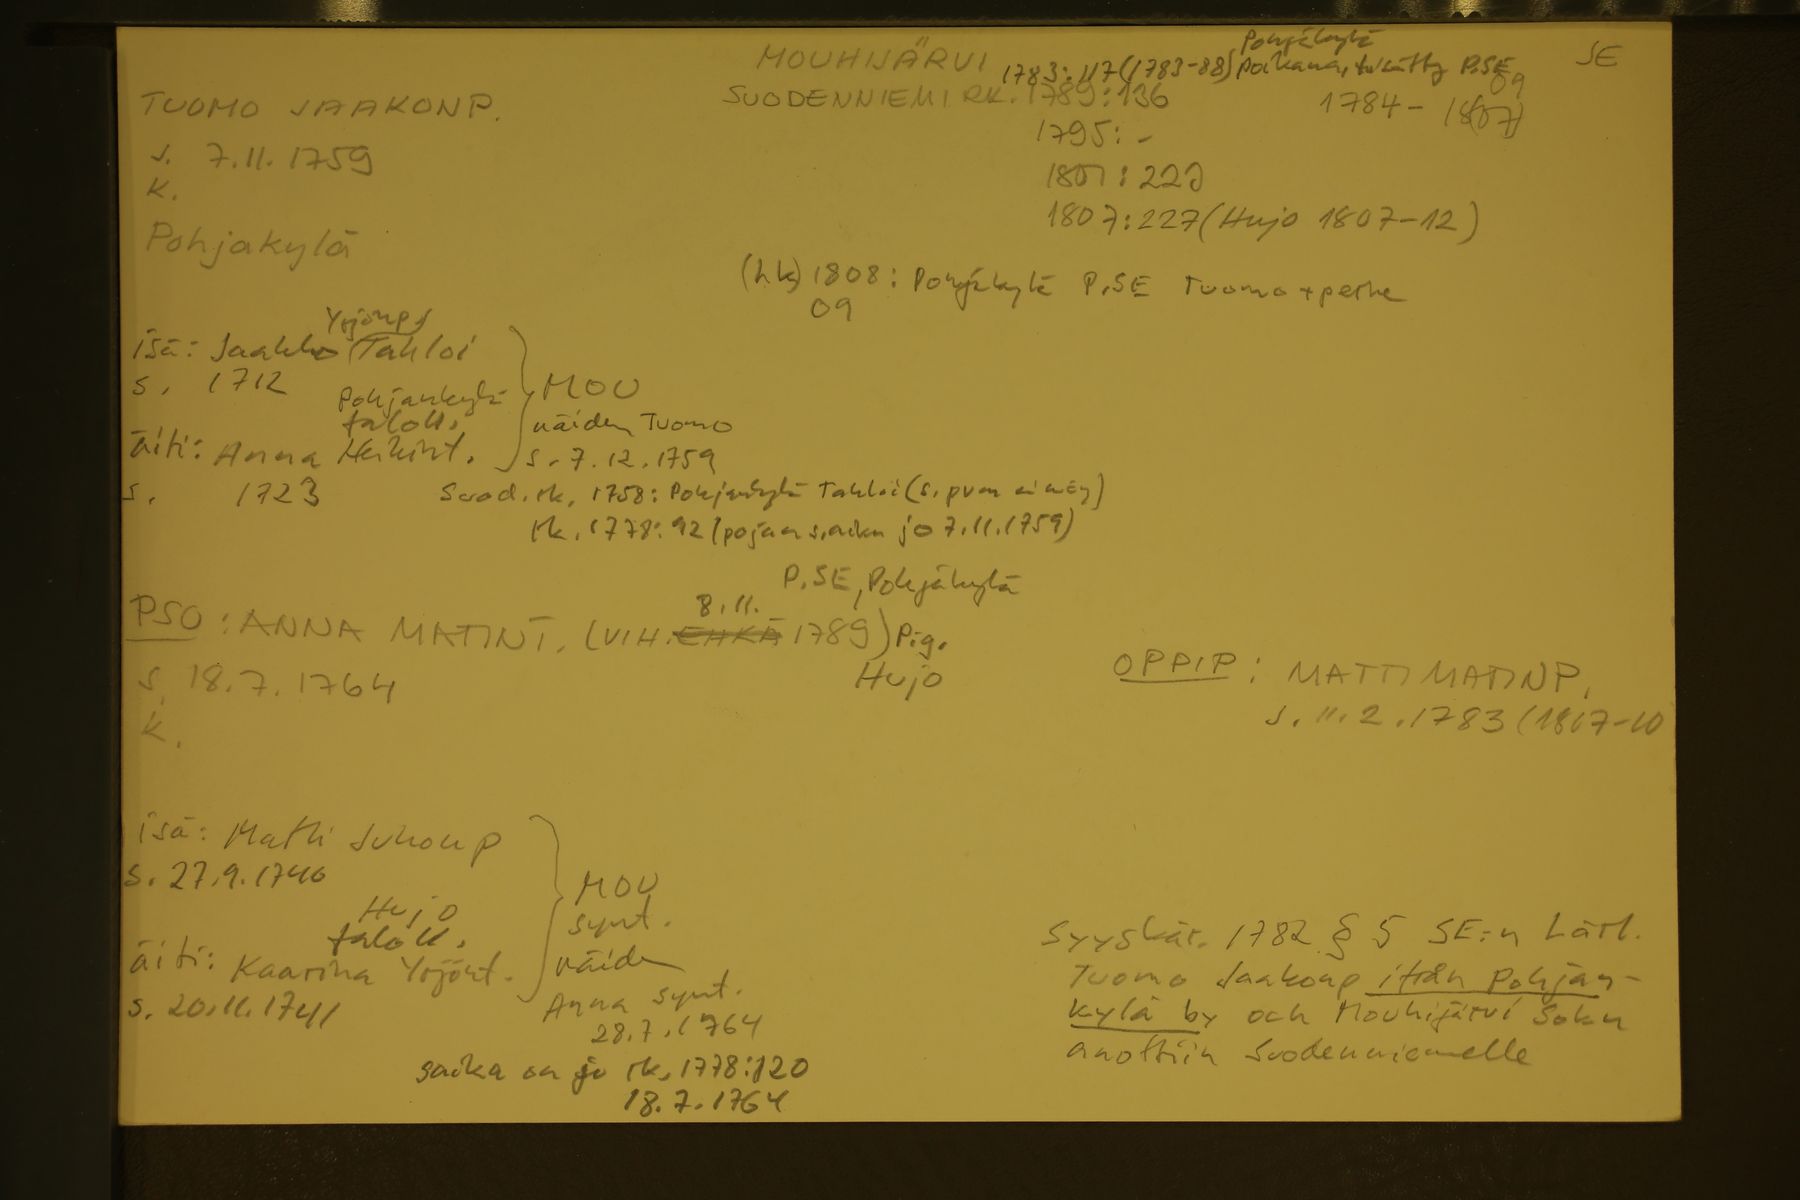 MOUHIJÄRVI 1783:117(1783-88) Pohjakylä poikana, tvkätty P.SE SE
TUOMO JAAKONP. SUODENNIEMI RK. 1789:136 1784-1807 09
s. 7.11.1759 1795: -
k. 1801:220
Pohjakylä 1807:227 (Hujo 1807-12)
(hk) 1808: Pohjakylä P.SE Tuomo + perhe
09
isä: Jaakko Yrjönp. Tahloi
s. 1712
Pohjankylä
taloll.
äiti: Anna Heikint.
s. 1723
MOU
näiden Tuomo
s. 7.12.1759
Suod. rk. 1758: Pohjankylä Tahloi (s. pvm ei näy)
rk. 1778:92 (pojan s.aika jo 7.11.1759)
P.SE, Pohjakylä
PSO: ANNA MATINT. (VIH. EHKÄ 8.11. 1789) Pig.
Hujo
s. 18.7.1764
k.
OPPIP: MATTI MATINP.
s. 11.2.1783 (1807-10
isä: Matti Juhonp
s. 27.9.1740
Hujo
taloll.
äiti: Kaarina Yrjönt.
s. 20.11.1741
MOU
synt.
näiden
Anna synt.
28.7.1764
saika on jo rk. 1778:120
18.7.1764
Syyskär. 1782 § 5 SE:n Lärl.
Tuomo Jaakonp ifrån Pohjan-
kylä by och Mouhijärvi Sokn
anottiin Suodenniemelle